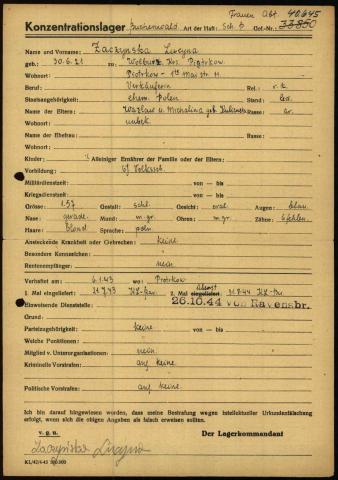 Frauen Abt. 40645
Konzentrationslager Buchenwald Art der Haft: Sch. P. Gef.-Nr.: 33850
Name und Vorname: Zaczynska Lucyna
geb.: 30.6.21 zu Wolborz, Krs. Piotrkow
Wohnort Piotrkow - 1ter Mai str. 11
Beruf: Verkäuferin Rel.: r.k.
Staatsangehörigkeit: ehem. Polen Stand: led.
Name der Eltern: u. Michalina geb. Rasse: ar.
Wohnort: unbek.
Name der Ehefrau: Rasse:
Wohnort:
Kinder: Alleiniger Ernährer der Familie oder der Eltern:
Vorbildung: Volkssch.
Militärdienstzeit: von — bis
Kriegsdienstzeit: von — bis
Grösse: 1.57 Gestalt: schl. Gesicht: oval Augen: blau
Nase: gerade Mund: m.gr. Ohren: m.gr. Zähne: 6 fehlen
Haare: blond Sprache: poln
Ansteckende Krankheit oder Gebrechen: keine
Besondere Kennzeichen:
Rentenempfänger: nein
Verhaftet am: 6.1.43 wo: Piotrkow
1. Mal eingeliefert: 2. Mal eingeliefert:
26.10.44 von Ravensbr.
Einweisende Dienststelle:
Grund:
Parteizugehörigkeit: keine von — bis
Welche Funktionen: keine
Mitglied v. Unterorganisationen: nein
Kriminelle Vorstrafen: ang. keine
Politische Vorstrafen: ang. keine
Ich bin darauf hingewiesen worden, dass meine Bestrafung wegen intellektueller Urkundenfälschung
erfolgt, wenn sich die obigen Angaben als falsch erweisen sollten.
v. g. u. Der Lagerkommandant
Zaczyńska Lucyna
KL/42/4.43 500.000